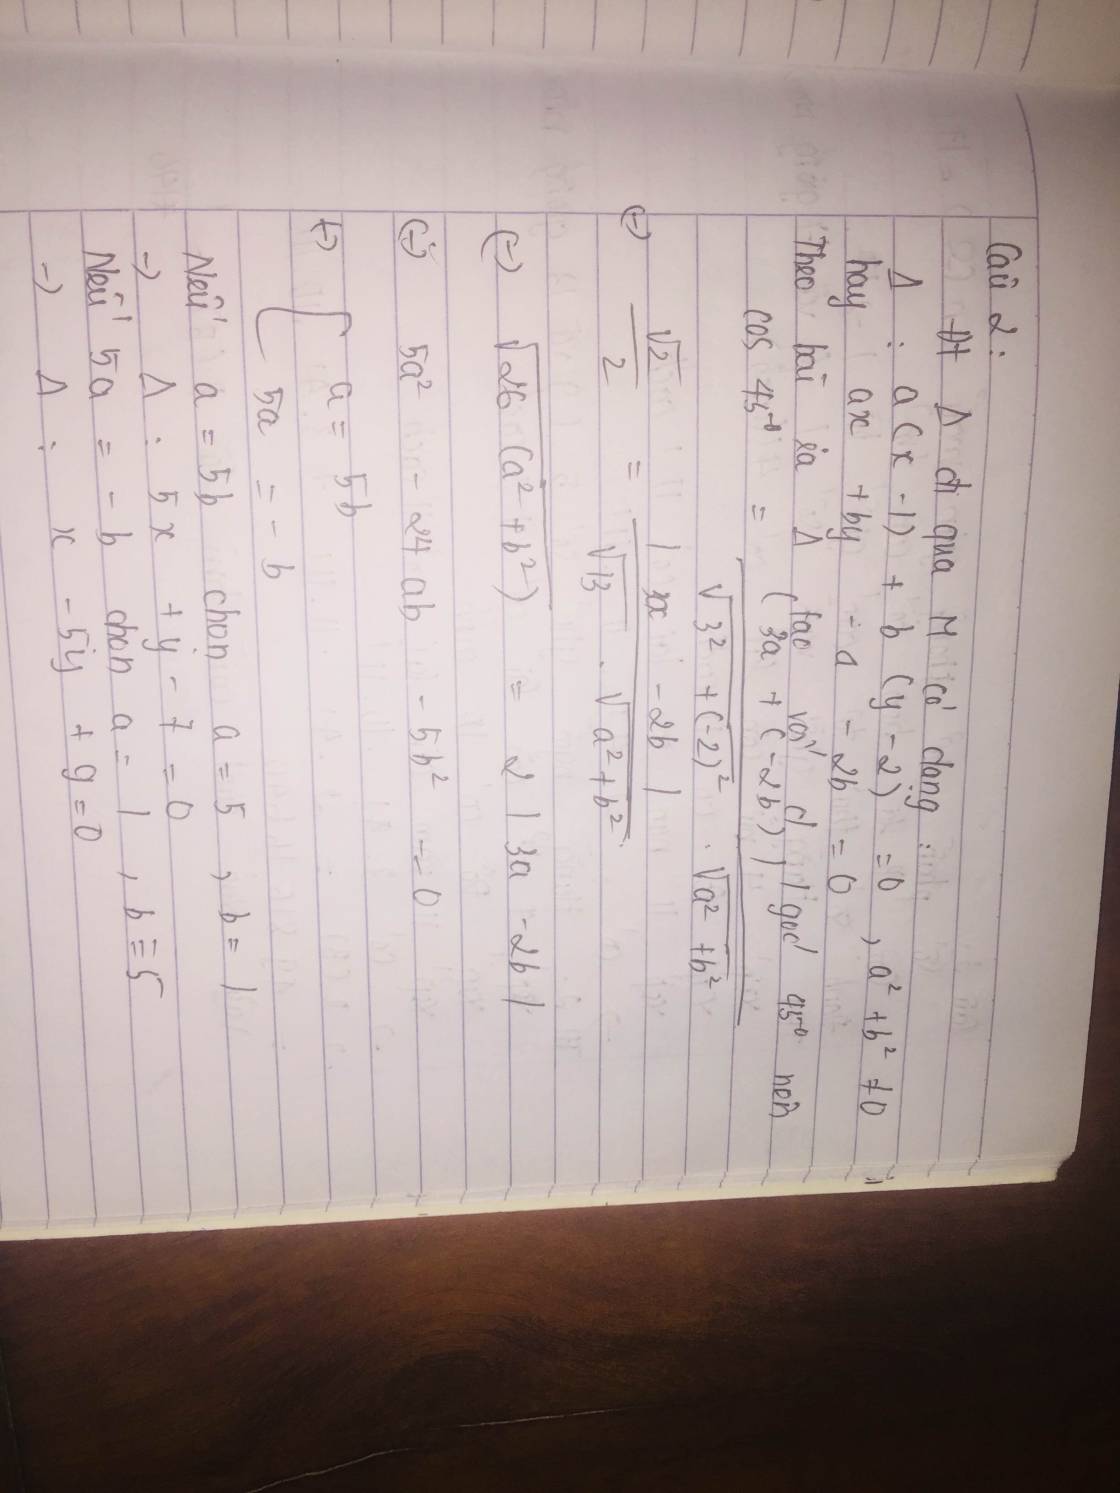 Câu 2:
Đt Δ đi qua M có dạng:
Δ : a(x - 1) + b(y - 2) = 0 , a² + b² ≠ 0
hay ax + by - a - 2b = 0
Theo bài ra Δ tạo với d 1 góc 45⁰ nên
cos 45⁰ = |3a + (-2b)| / √3² + (-2)² . √a² + b²
(=) √2 / 2 = |3x - 2b| / √13 . √a² + b²
(=) √26(a² + b²) = 2|3a - 2b|
(=) 5a² - 24ab - 5b² = 0
(=) [ a = 5b
5a = -b
Nếu a = 5b chọn a = 5 , b = 1
=) Δ : 5x + y - 7 = 0
Nếu 5a = -b chọn a = 1 , b = 5
=) Δ : x - 5y + 9 = 0